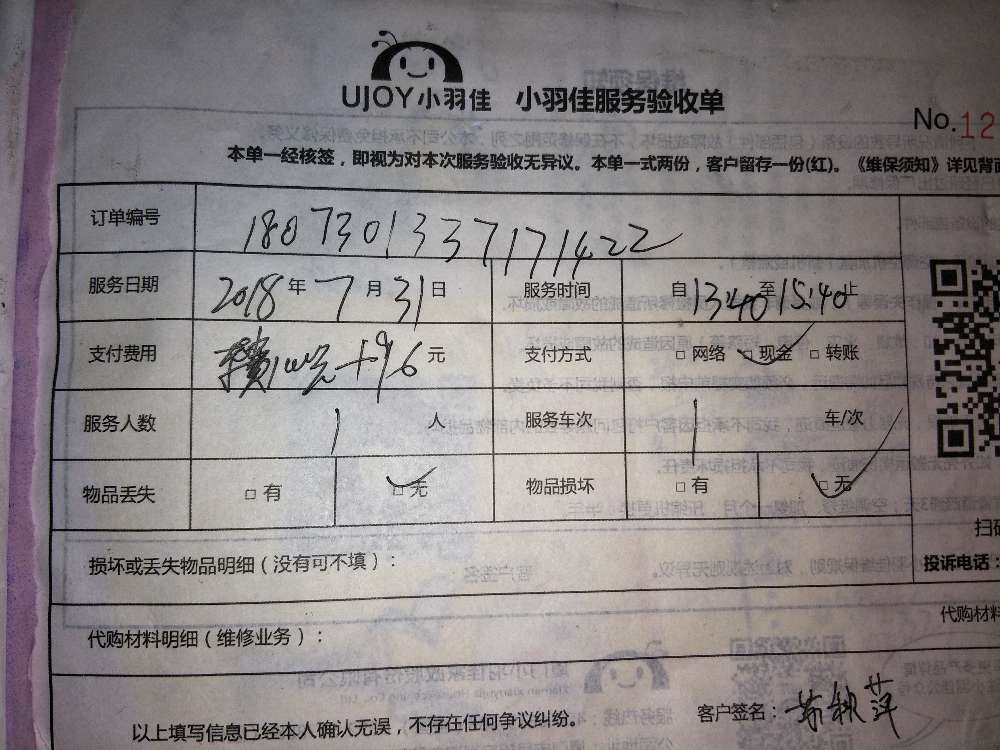 UJOY小羽佳 小羽佳服务验收单
No.12
本单一经核签，即视为对本次服务验收无异议。本单一式两份，客户留存一份(红)。《维保须知》详见背面
订单编号 1807301337171422
服务日期 2018年7月31日 服务时间 自13:40至15:40止
支付费用 100元+96元 支付方式 □网络 □现金 □转账
服务人数 1人 服务车次 1车/次
物品丢失 □有 □无 物品损坏 □有 □无
扫码
损坏或丢失物品明细（没有可不填）：
投诉电话：
代购材料
代购材料明细（维修业务）：
客户签名：
以上填写信息已经本人确认无误，不存在任何争议纠纷。